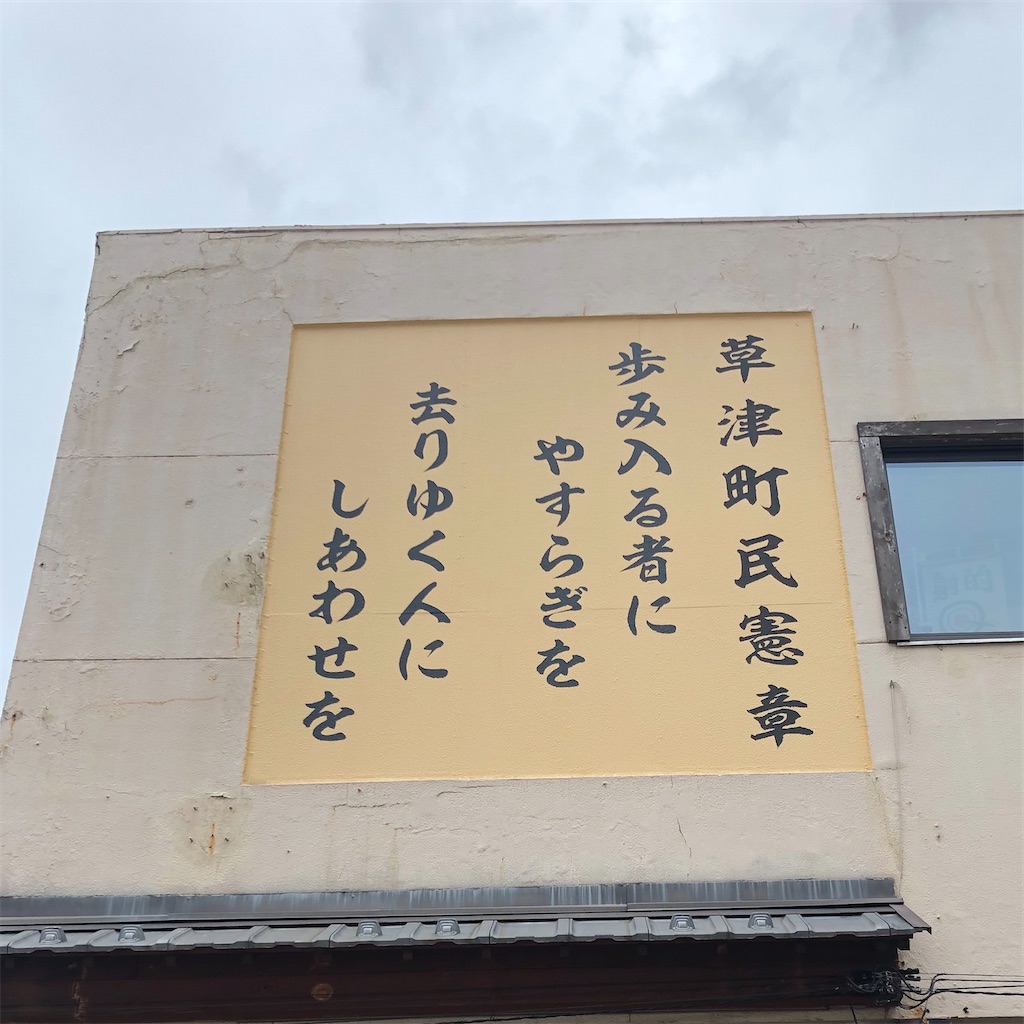 草津町民憲章
歩み入る者に
やすらぎを
去りゆく人に
しあわせを